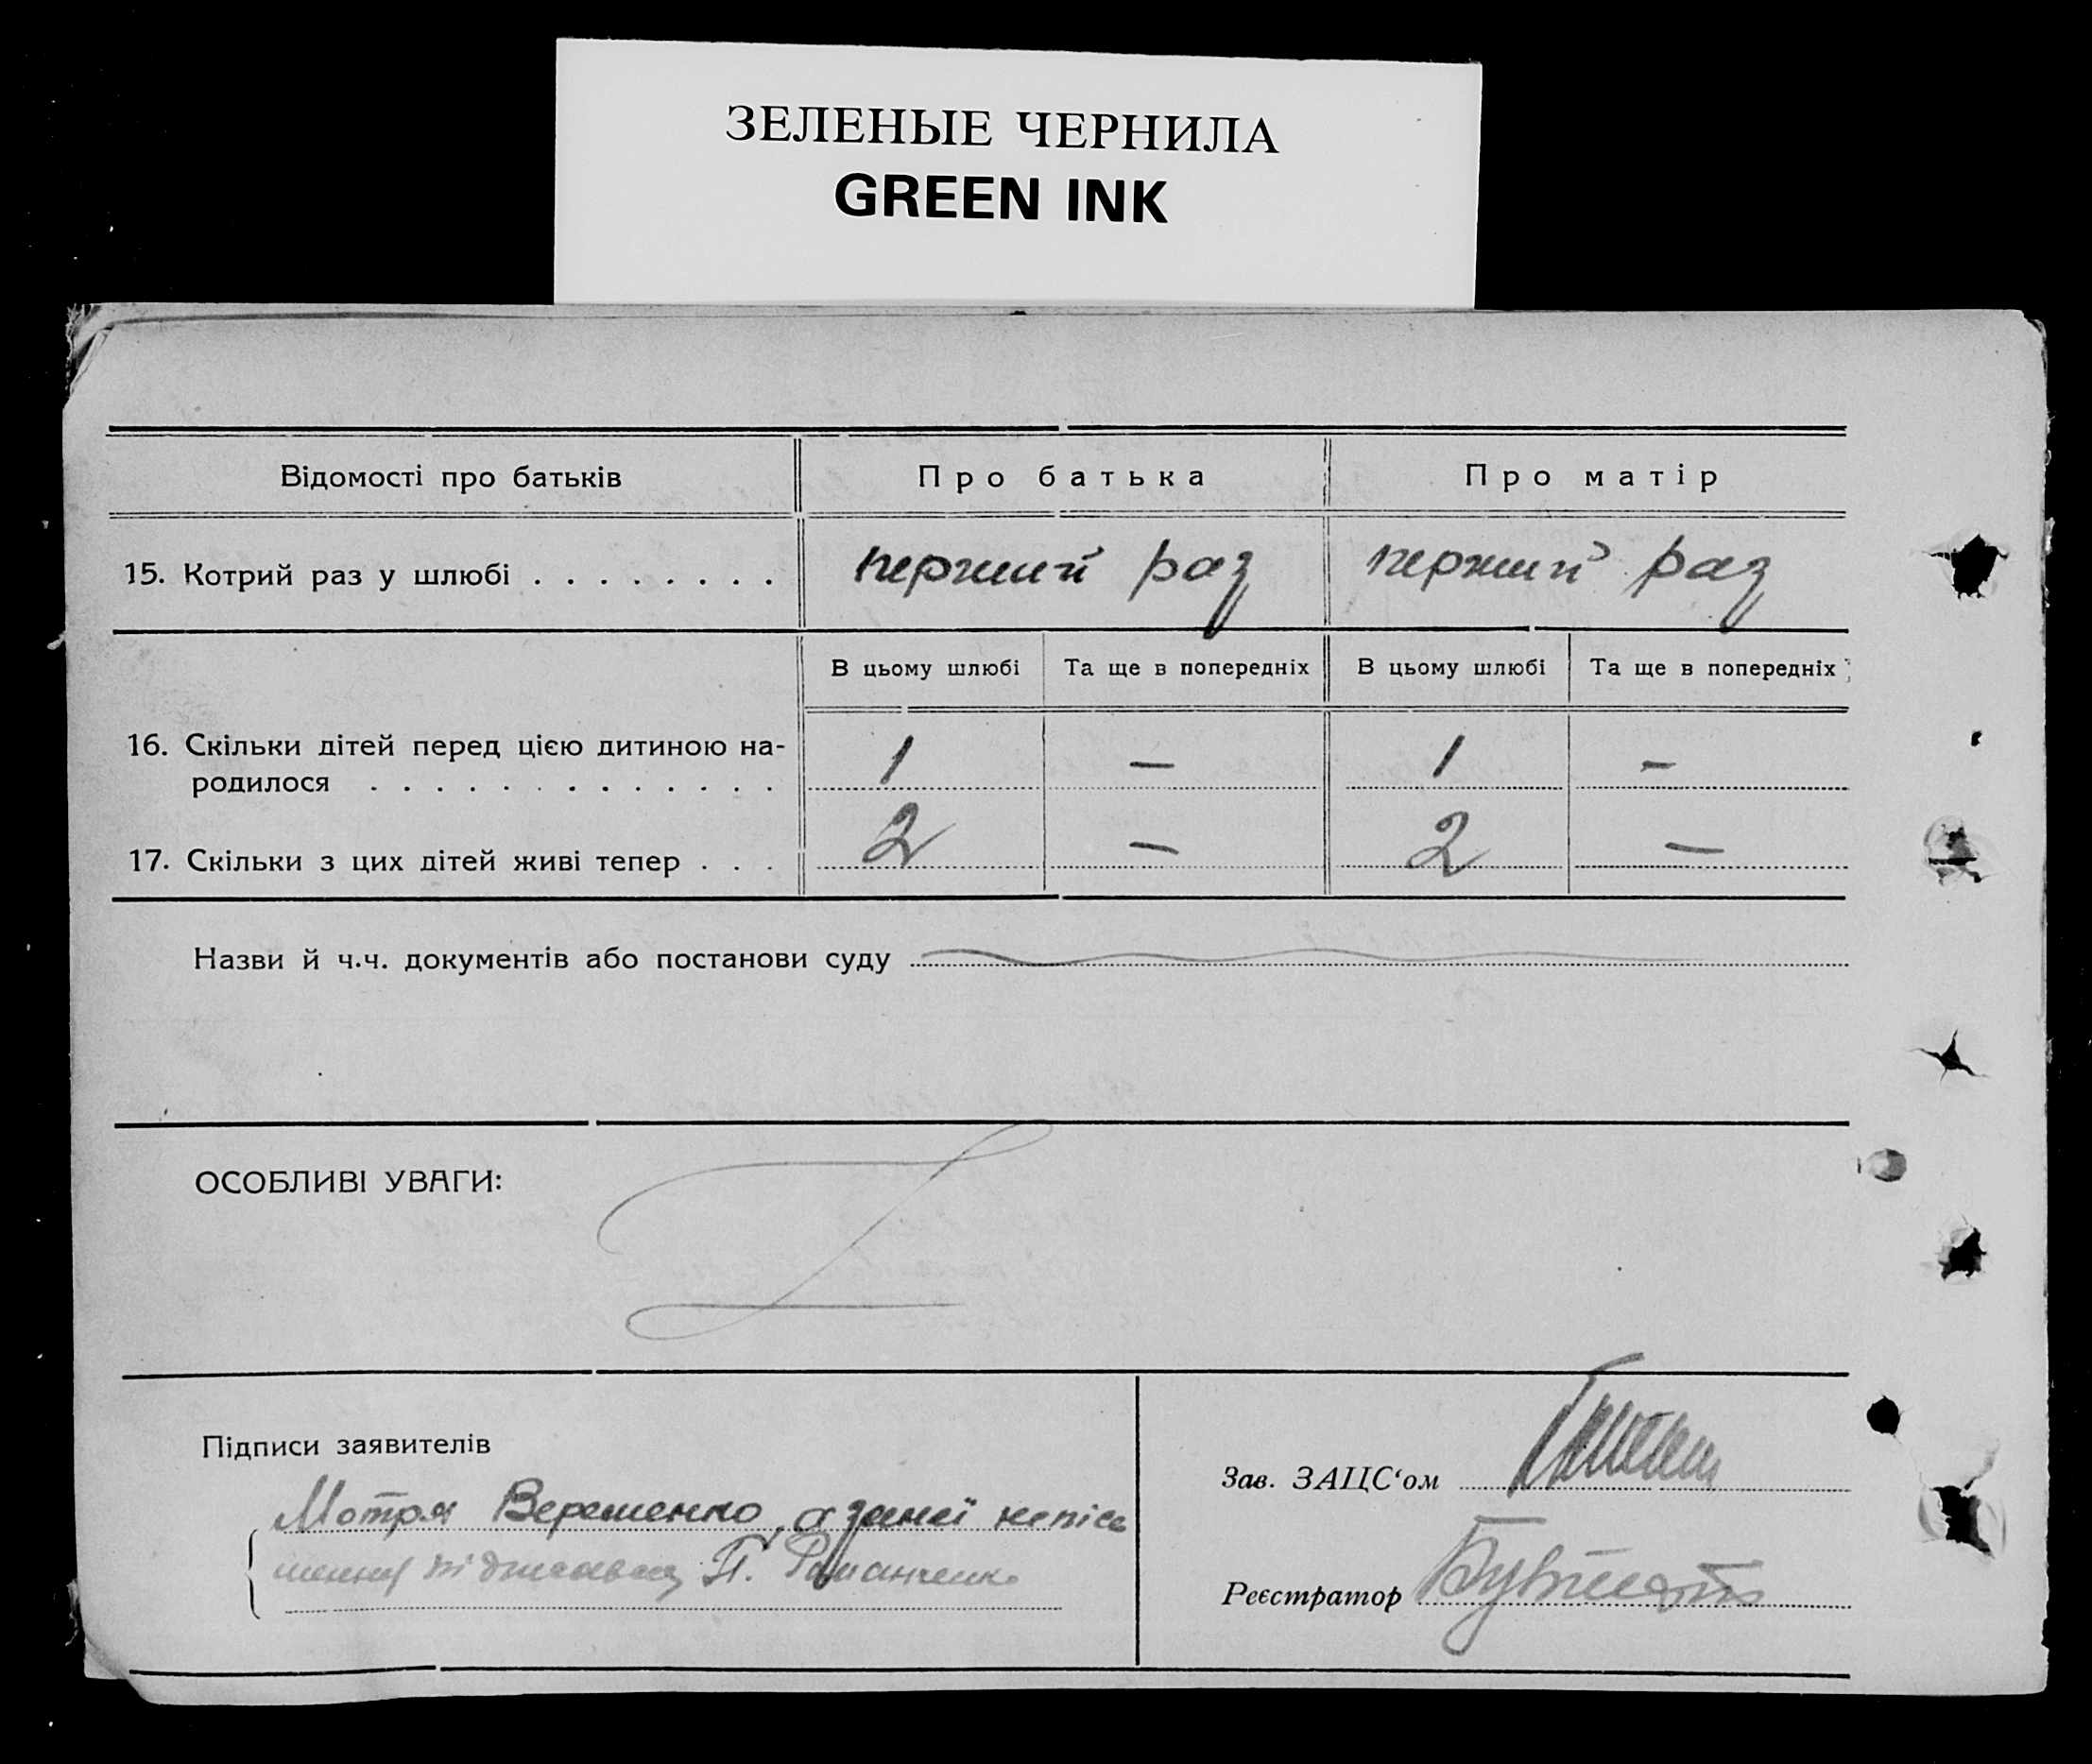 ЗЕЛЕНЫЕ ЧЕРНИЛА
GREEN INK
Відомості про батьків Про батька Про матір
15. Котрий раз у шлюбі . . . . . . . . перший раз перший раз
В цьому шлюбі Та ще в попередніх В цьому шлюбі Та ще в попередніх
16. Скільки дітей перед цією дитиною на-
родилося . . . . . . . . . . . . . 1 — 1 —
17. Скільки з цих дітей живі тепер . . . 2 — 2 —
Назви й ч.ч. документів або постанови суду
ОСОБЛИВІ УВАГИ:
Підписи заявителів
Мотря Верещенко, а за неї непісь
менну підписавсь П. Романченко
Зав. ЗАЦС‘ом
Реєстратор